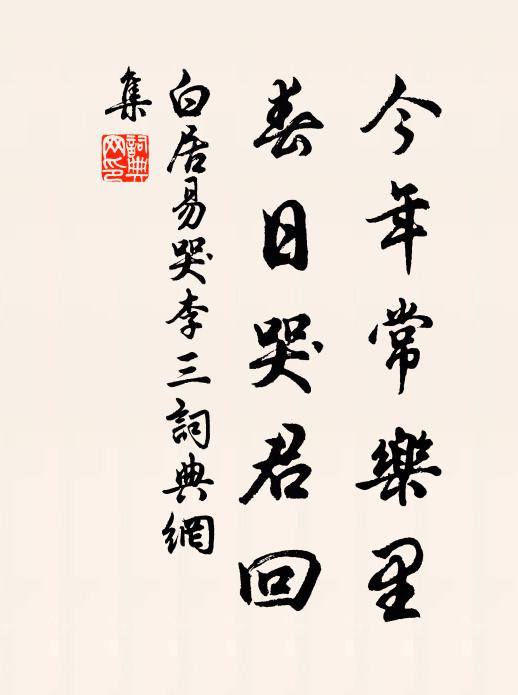 今年常樂里
春日哭君回
白居易哭李三詞典網
集
詞典
网印